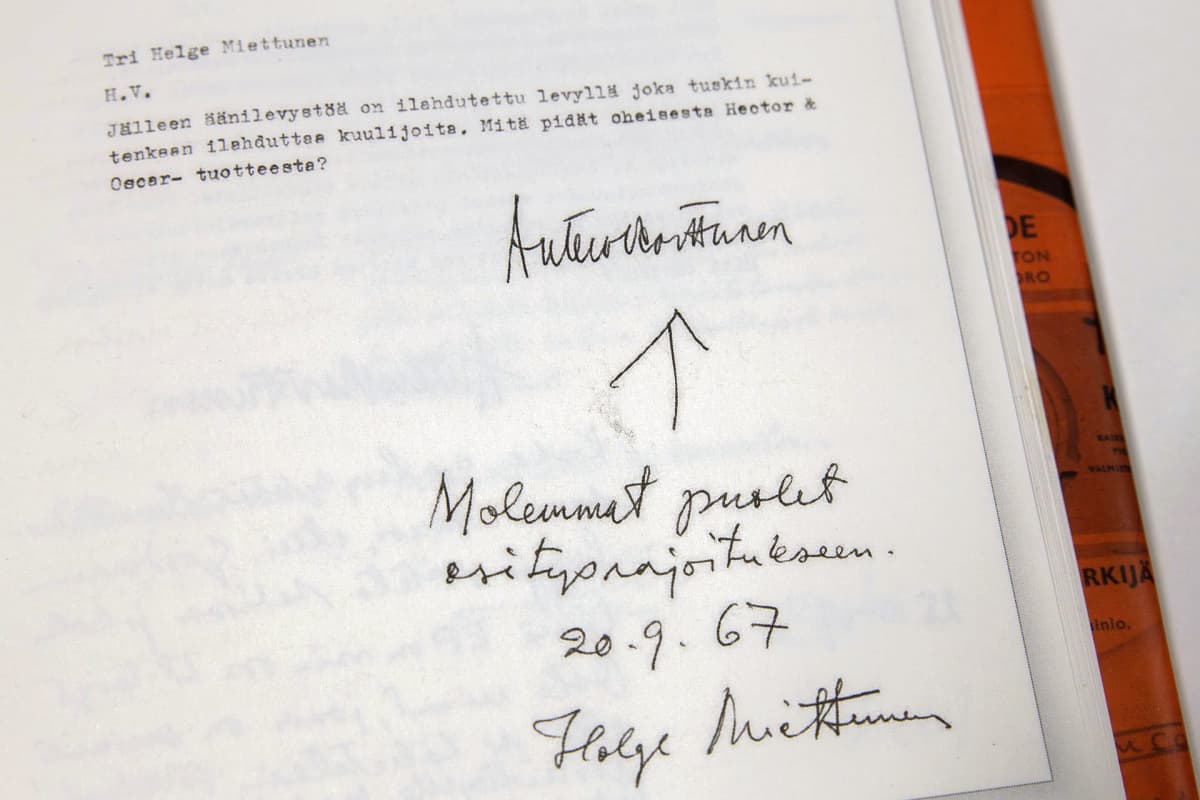 Tri Helge Miettunen
H.V.
Jälleen äänilevystöä on ilahdutettu levyllä joka tuskin kui-
tenkaan ilahduttaa kuulijoita. Mitä pidät oheisesta Hector &
Oscar- tuotteesta?
Antero Karttunen
Molemmat puolet
esitysrajoitukseen.
20.9. 67
Helge Miettunen
DE
TON
ORO
T
K
RKIJÄ
inio.